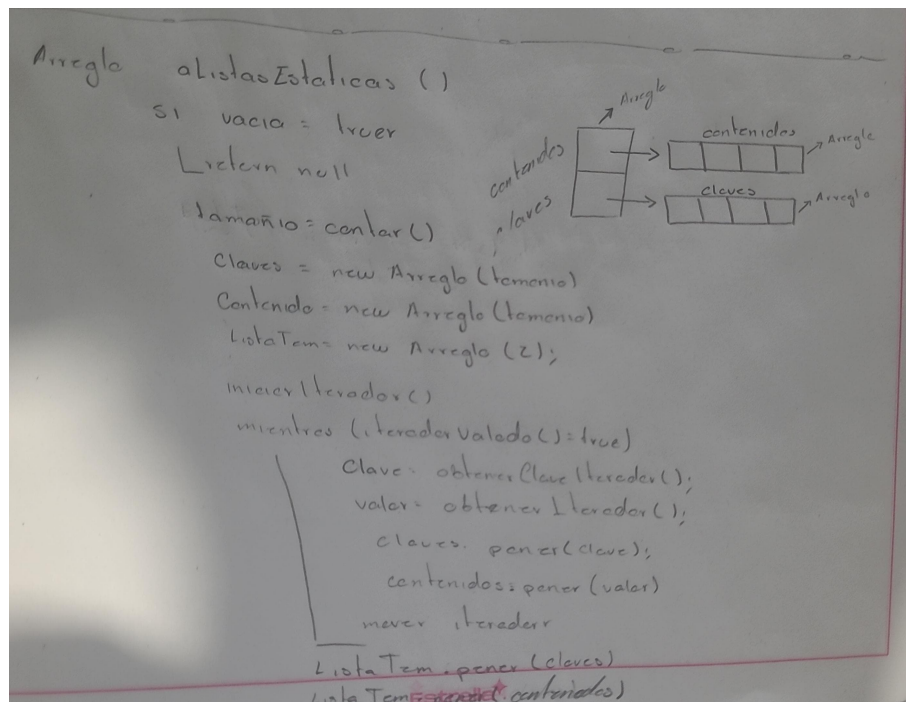 Arreglo aListasEstaticas ()
si vacia = truer
return null
tamañio = contar()
Claves = new Arreglo (tamanio)
Contenido = new Arreglo (tamanio)
ListaTem = new Arreglo (2);
iniciarIterador()
mientras (iteradorValado() = true)
Clave = obtenerClaveIterador();
valor = obtenerIterador();
claves. poner(clave);
contenidos: poner (valor)
mover iteradorr
ListaTem. poner (claves)
Lista Tem contenidos)
Arreglo
contenidos
claves
contenidos
Arreglo
claves
Arreglo